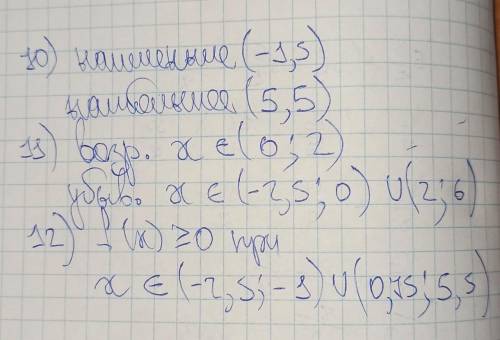 10) наименьшие (-1,5)
наибольшее (5,5)
11) возр. x ∈ (0; 2)
убыв. x ∈ (-2,5; 0) ∪ (2; 6)
12) f(x) ≥ 0 при
x ∈ (-2,5; -1) ∪ (0,75; 5,5)